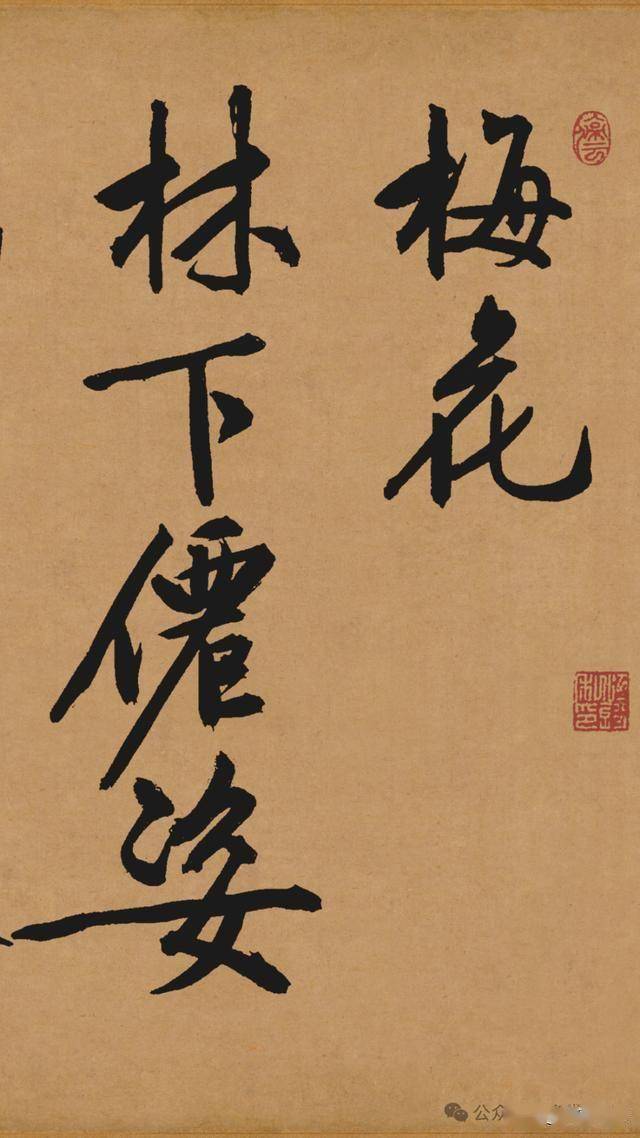 梅花
林下僊姿
公众